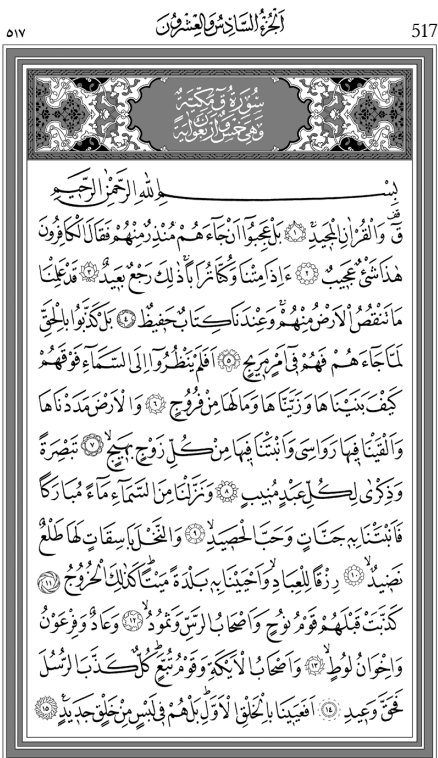 ٥١٧ اَلْجُزْءُ السَّادِسُ وَالْعِشْرُونَ 517
سُورَةُ قٓ مَكِّيَّةٌ
وَهِيَ خَمْسٌ وَاَرْبَعُونَ اٰيَةً
بِسْمِ اللّٰهِ الرَّحْمٰنِ الرَّحٖيمِ
قٓ وَالْقُرْاٰنِ الْمَجٖيدِۚ ﴿١﴾ بَلْ عَجِبُٓوا اَنْ جَٓاءَهُمْ مُنْذِرٌ مِنْهُمْ فَقَالَ الْكَافِرُونَ
هٰذَا شَيْءٌ عَجٖيبٌۚ ﴿٢﴾ ءَاِذَا مِتْنَا وَكُنَّا تُرَابًاۚ ذٰلِكَ رَجْعٌ بَعٖيدٌ ﴿٣﴾ قَدْ عَلِمْنَا
مَا تَنْقُصُ الْاَرْضُ مِنْهُمْۚ وَعِنْدَنَا كِتَابٌ حَفٖيظٌ ﴿٤﴾ بَلْ كَذَّبُوا بِالْحَقِّ
لَمَّا جَٓاءَهُمْ فَهُمْ فٖٓي اَمْرٍ مَرٖيجٍ ﴿٥﴾ اَفَلَمْ يَنْظُرُٓوا اِلَى السَّمَٓاءِ فَوْقَهُمْ
كَيْفَ بَنَيْنَاهَا وَزَيَّنَّاهَا وَمَا لَهَا مِنْ فُرُوجٍ ﴿٦﴾ وَالْاَرْضَ مَدَدْنَاهَا
وَاَلْقَيْنَا فٖيهَا رَوَاسِيَ وَاَنْبَتْنَا فٖيهَا مِنْ كُلِّ زَوْجٍ بَهٖيجٍۙ ﴿٧﴾ تَبْصِرَةً
وَذِكْرٰى لِكُلِّ عَبْدٍ مُنٖيبٍ ﴿٨﴾ وَنَزَّلْنَا مِنَ السَّمَٓاءِ مَٓاءً مُبَارَكًا
فَاَنْبَتْنَا بِهٖ جَنَّاتٍ وَحَبَّ الْحَصٖيدِۙ ﴿٩﴾ وَالنَّخْلَ بَاسِقَاتٍ لَهَا طَلْعٌ
نَضٖيدٌۙ ﴿١٠﴾ رِزْقًا لِلْعِبَادِۙ وَاَحْيَيْنَا بِهٖ بَلْدَةً مَيْتًاۜ كَذٰلِكَ الْخُرُوجُ ﴿١١﴾
كَذَّبَتْ قَبْلَهُمْ قَوْمُ نُوحٍ وَاَصْحَابُ الرَّسِّ وَثَمُودُۙ ﴿١٢﴾ وَعَادٌ وَفِرْعَوْنُ
وَاِخْوَانُ لُوطٍۙ ﴿١٣﴾ وَاَصْحَابُ الْاَيْكَةِ وَقَوْمُ تُبَّعٍۜ كُلٌّ كَذَّبَ الرُّسُلَ
فَحَقَّ وَعٖيدِ ﴿١٤﴾ اَفَعَيٖينَا بِالْخَلْقِ الْاَوَّلِۜ بَلْ هُمْ فٖي لَبْسٍ مِنْ خَلْقٍ جَدٖيدٍ۟ ﴿١٥﴾